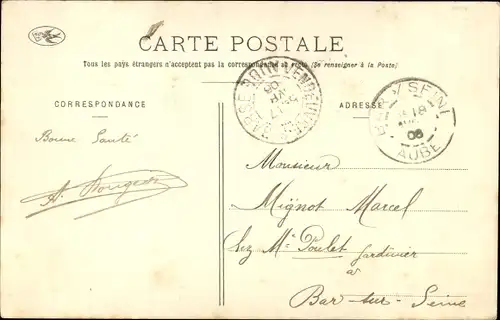 CARTE POSTALE
Tous les pays étrangers n'acceptent pas la correspondance au recto (Se renseigner à la Poste)
CORRESPONDANCE
ADRESSE
VENDEUVRE
17
08
BAR S/ SEINE
18
08
AUBE
Bonne Santé
Monsieur
Mignot Marcel
Chez Mr Poulet Jardinier
à
Bar-sur-Seine